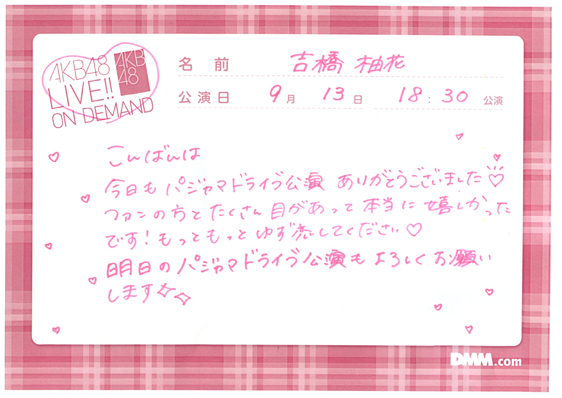 AKB48
LIVE!!
ON DEMAND
AKB
48
名前 吉橋 柚花
公演日 9月 13日 18:30 公演
こんばんは
今日もパジャマドライブ公演 ありがとうございました♡
ファンの方とたくさん目があって本当に嬉しかった
です!もっともっとゆず恋してください♡
明日のパジャマドライブ公演もよろしくお願い
します☆☆
DMM.com